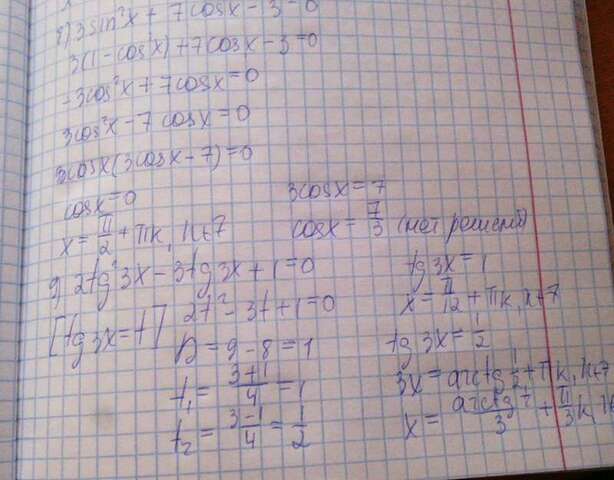 3sin²x + 7cosx - 3 = 0
3(1 - cos²x) + 7cosx - 3 = 0
-3cos²x + 7cosx = 0
3cos²x - 7cosx = 0
cosx(3cosx - 7) = 0
cosx = 0
3cosx = 7
x = π/2 + πk, k∈Z
cosx = 7/3 (нет решений)
g) 2tg²3x - 3tg3x + 1 = 0
[tg3x = t] 2t² - 3t + 1 = 0
D = 9 - 8 = 1
t₁ = (3+1)/4 = 1
t₂ = (3-1)/4 = 1/2
tg3x = 1
x = π/12 + πk, k∈Z
tg3x = 1/2
3x = arctg 1/2 + πk, k∈Z
x = + π/3 k,